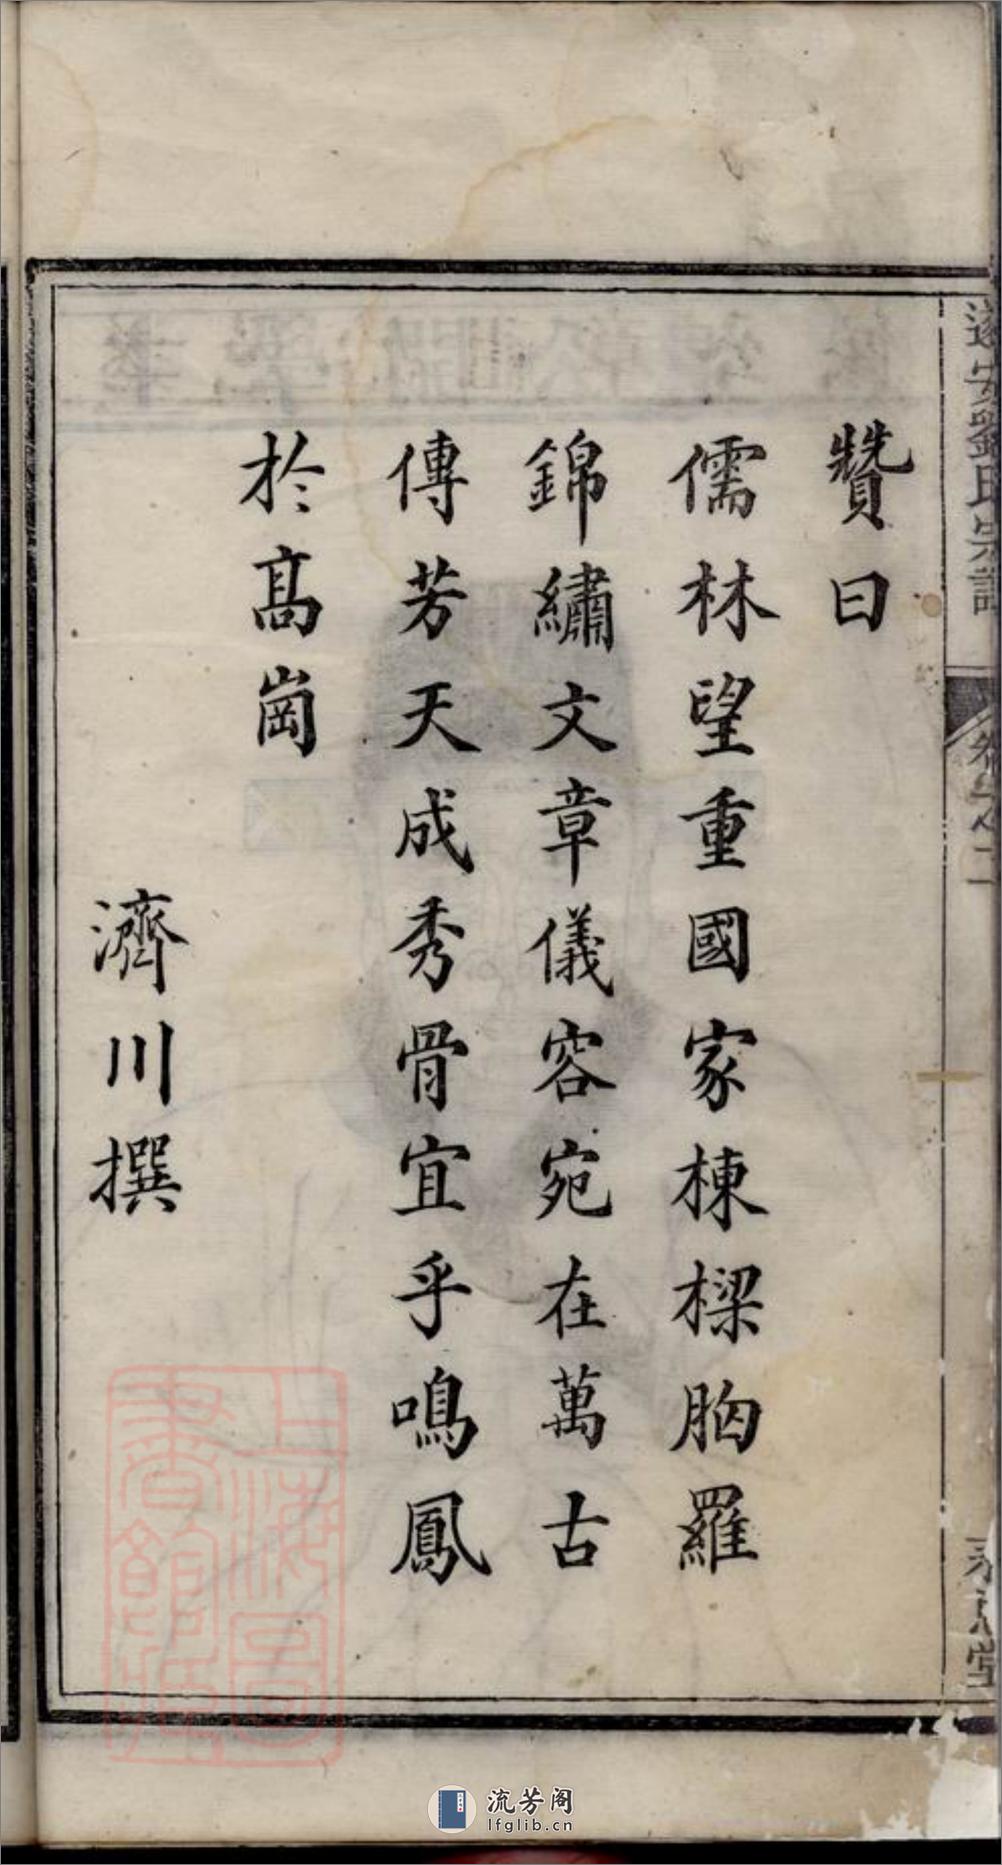 贊曰
儒林望重國家棟樑胸羅
錦繡文章儀容宛在萬古
傳芳天成秀骨宜乎鳴鳳
於高崗
濟川撰
遂安劉氏宗譜
卷之二
上海圖書館藏
流芳阁
lfglib.cn